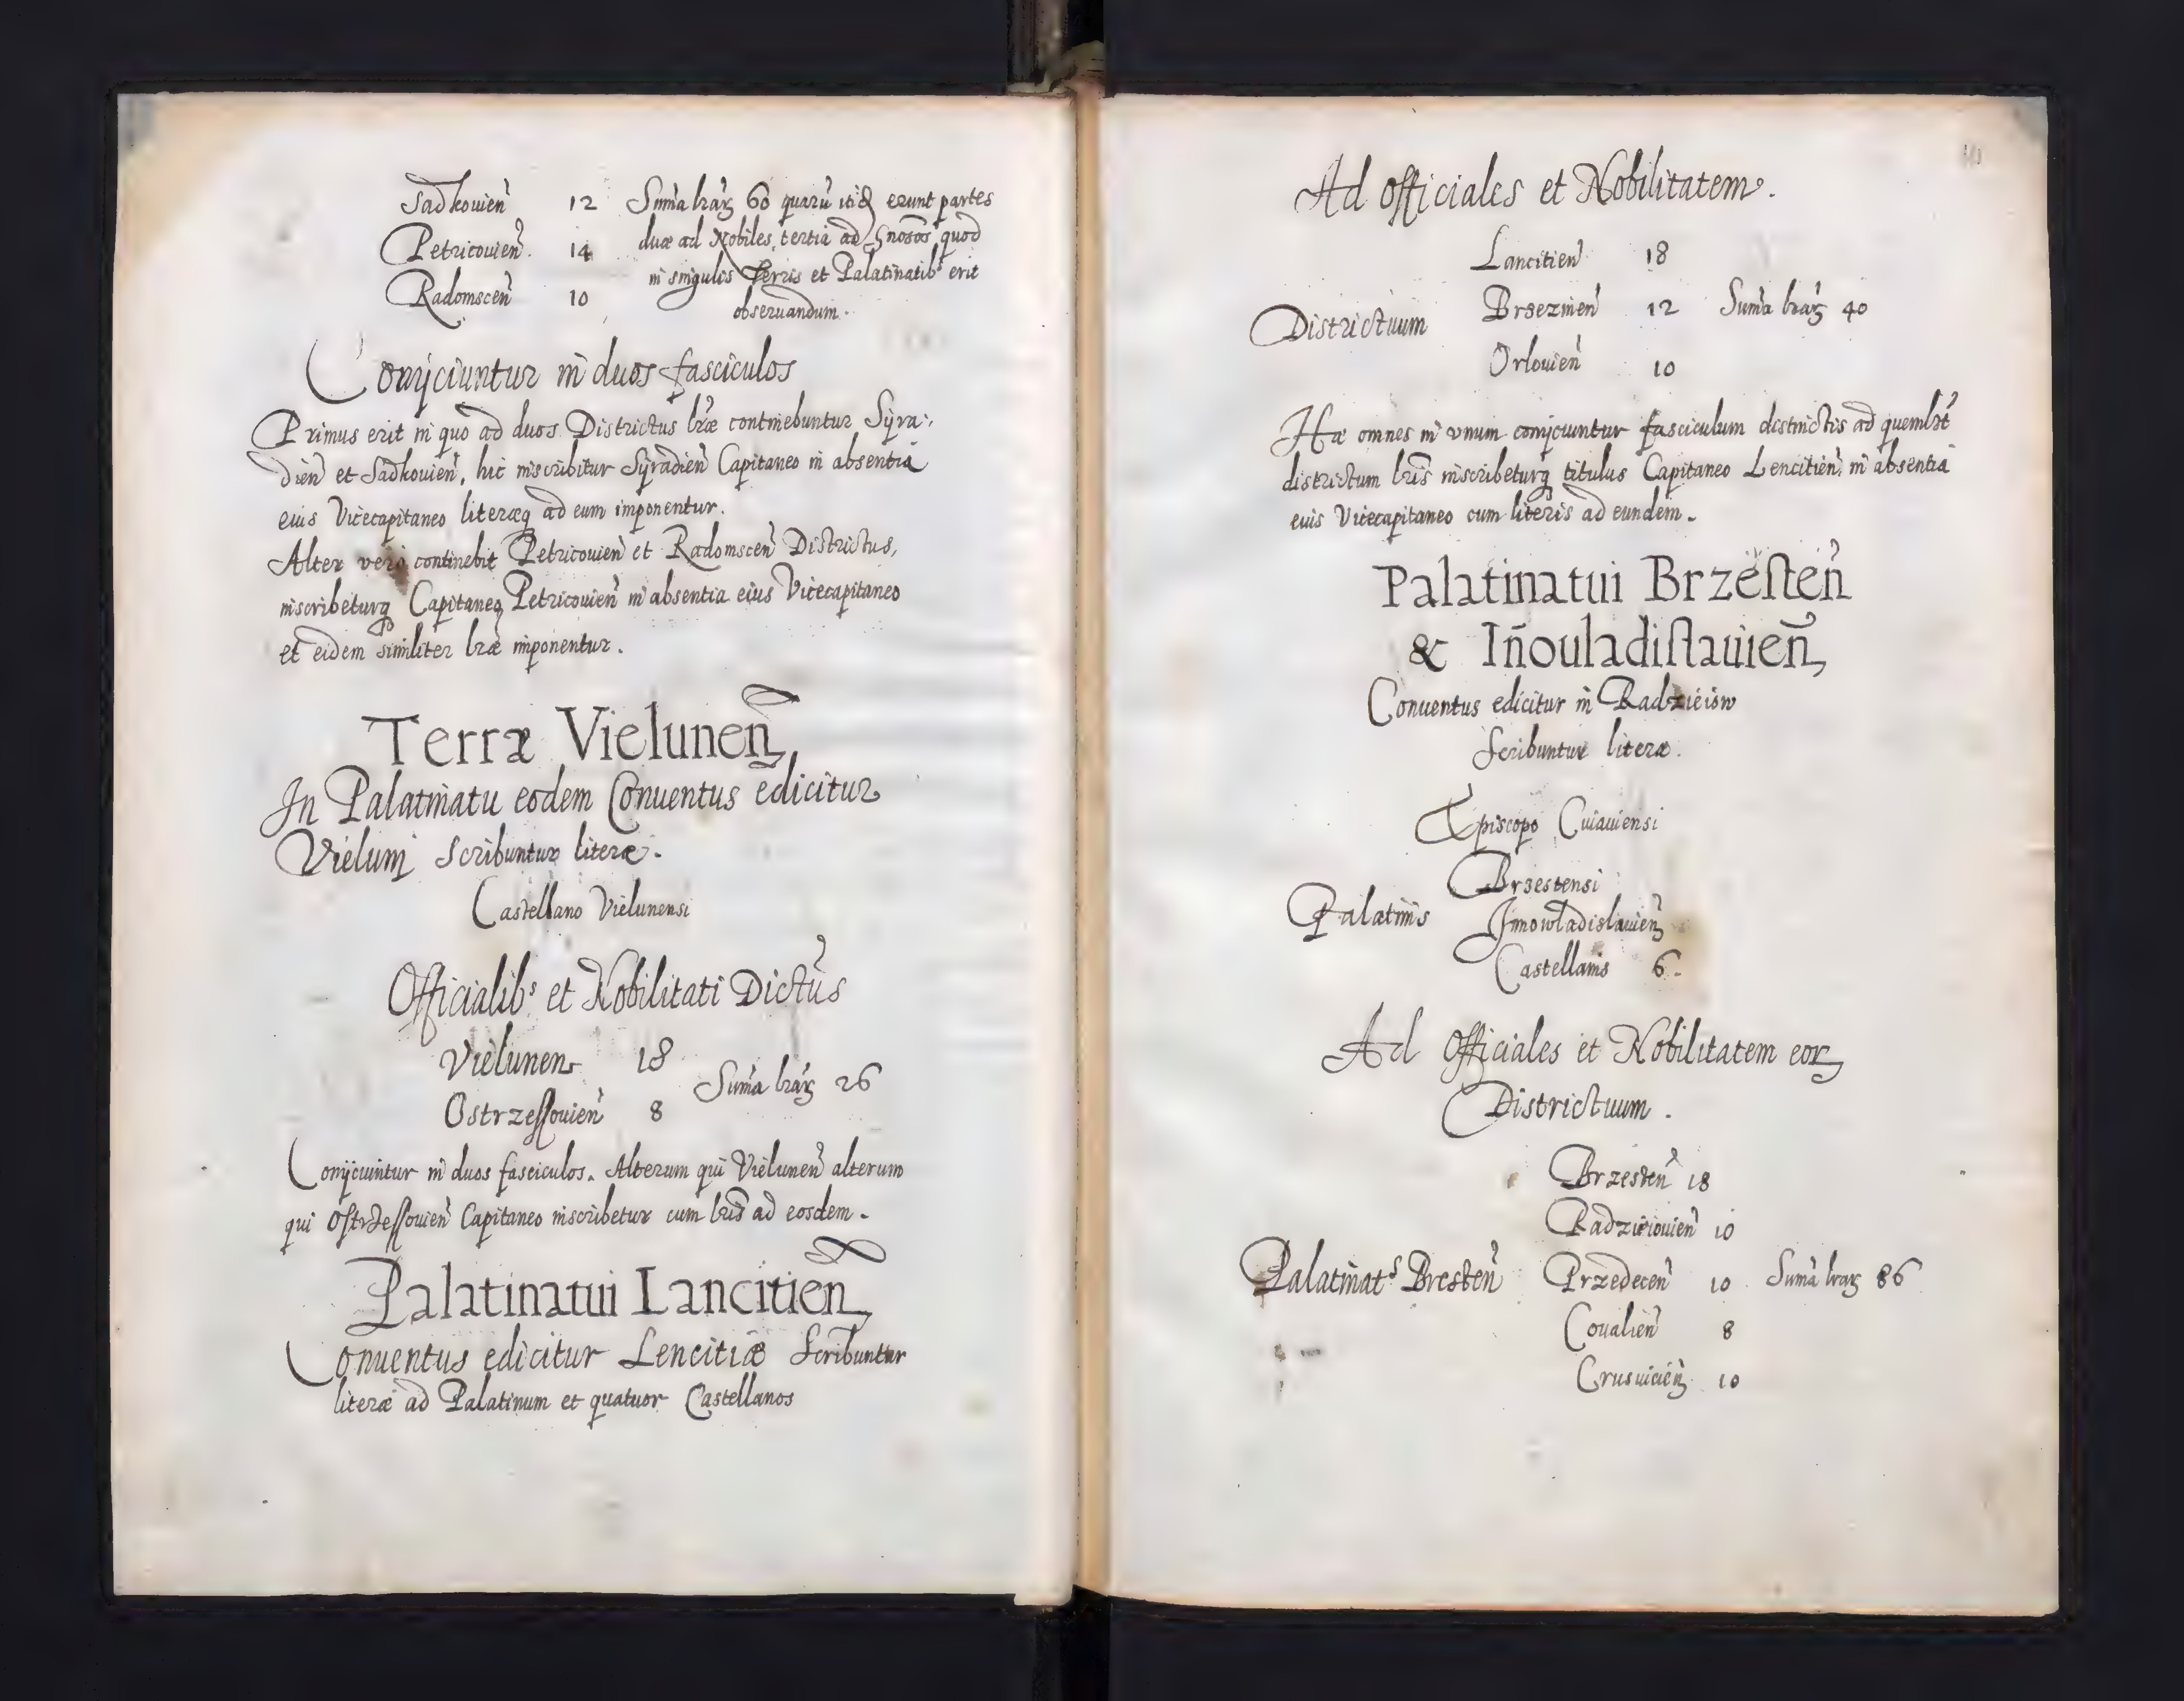 Sadkouien̄ 12 Sum̄a lrãꝝ 60 quarū erunt partes
Petricouien̄. 14 duæ ad Nobiles, tertia ad quod
Radomscen̄ 10 in singulis Terris et Palatinatibꝰ erit
obseruandum.
Conijciuntur in duos fasciculos
Primus erit in quo ad duos Districtus lr̃æ continebuntur Syra:
dien̄ et Sadkouien̄, hic inscribitur Syradien̄ Capitaneo in absentia
eius Vicecapitaneo literæq ad eum imponentur.
Alter vero continebit Petricouien̄ et Radomscen̄ Districtus,
inscribeturq Capitaneo Petricouien̄ in absentia eius Vicecapitaneo
et eidem similiter lræ imponentur.
Terræ Vielunen̄
In Palatinatu eodem Conuentus edicitur
Vieluni Scribuntur literæ.
Castellano Vielunensi
Officialibꝰ et Nobilitati Dictus
Vielunen 18
Sum̄a lrãꝝ 26
Ostrzeſſouien̄ 8
Conijciuntur in duos fasciculos. Alterum qui Vielunen̄ alterum
qui Oſtrzeſſouien̄ Capitaneo inscribetur cum lris̄ ad eosdem.
Palatinatui Lancitien̄
Conuentus edicitur Lencitiæ Scribuntur
literæ ad Palatinum et quatuor Castellanos
Ad officiales et Nobilitatem.
Lancitien̄ 18
Districtuum Brzezinen̄ 12 Sum̄a lrãꝝ 40
Orlouien̄ 10
Hæ omnes in vnum conijciuntur fasciculum distinctis ad quemlr̃t
districtum lris̄ inscribeturq titulus Capitaneo Lencitien̄ in absentia
euis Vicecapitaneo cum literis ad eundem.
Palatinatui Brzeſten̄
& Iñouladiſlauien̄
Conuentus edicitur in Radzieiow
Scribuntur literæ.
Episcopo Cuiauiensi
Brzestensi
Palatinis Jnnowladislauien̄
Castellanis 6.
Ad Officiales et Nobilitatem eorꝝ
Districtuum.
Brzesten̄ 18
Radzieiouien̄ 10
Palatinatꝰ Bresten̄ Przedecen̄ 10 Sum̄a lrãꝝ 86
Coualien̄ 8
Crusuicien̄ 10